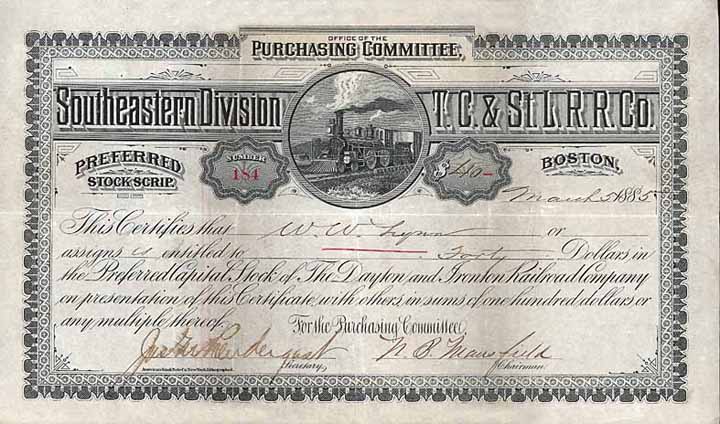 OFFICE OF THE
PURCHASING COMMITTEE,
Southeastern Division T.C. & St L.R.R. Co.
PREFERRED STOCK SCRIP.
NUMBER 184
$40-
BOSTON,
March 5 1885
This Certifies that W. W. or
assigns is entitled to Forty Dollars in
the Preferred Capital Stock of The Dayton and Ironton Railroad Company
on presentation of this Certificate, with others, in sums of one hundred dollars or
any multiple thereof.
For the Purchasing Committee,
Prendergast N. B. Mansfield
Secretary. Chairman.
American Bank Note Co. New York. Lithographed.